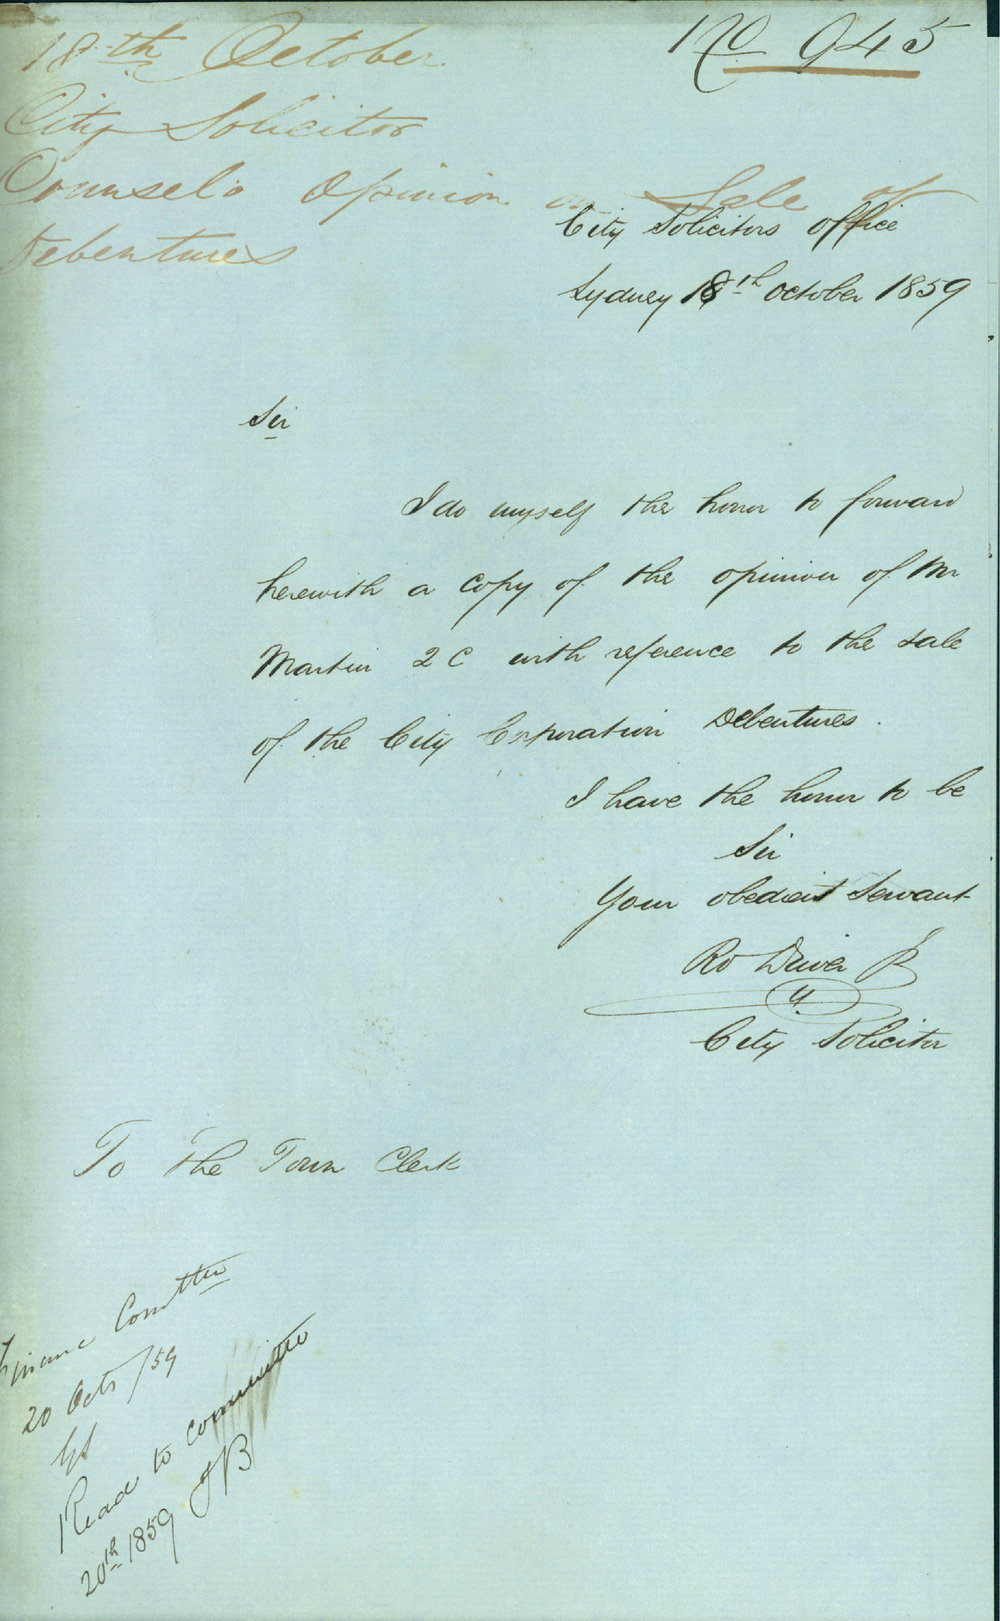 18th October
No 945
City Solicitor
Counsel's Opinion on Sale of
Debentures
City Solicitors office
Sydney 18th October 1859
Sir
I do myself the honor to forward
herewith a copy of the opinion of Mr
Martin QC with reference to the sale
of the City Corporation Debentures.
I have the honor to be
Sir
Your obedient Servant
Ro Driver Jr
City Solicitor
To The Town Clerk
Finance Comttee
20 Octr /59
Read to committee
20th 1859 JB